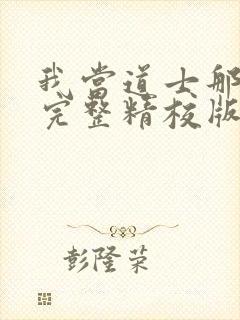 我当道士那
完整精校版
彭隆荣